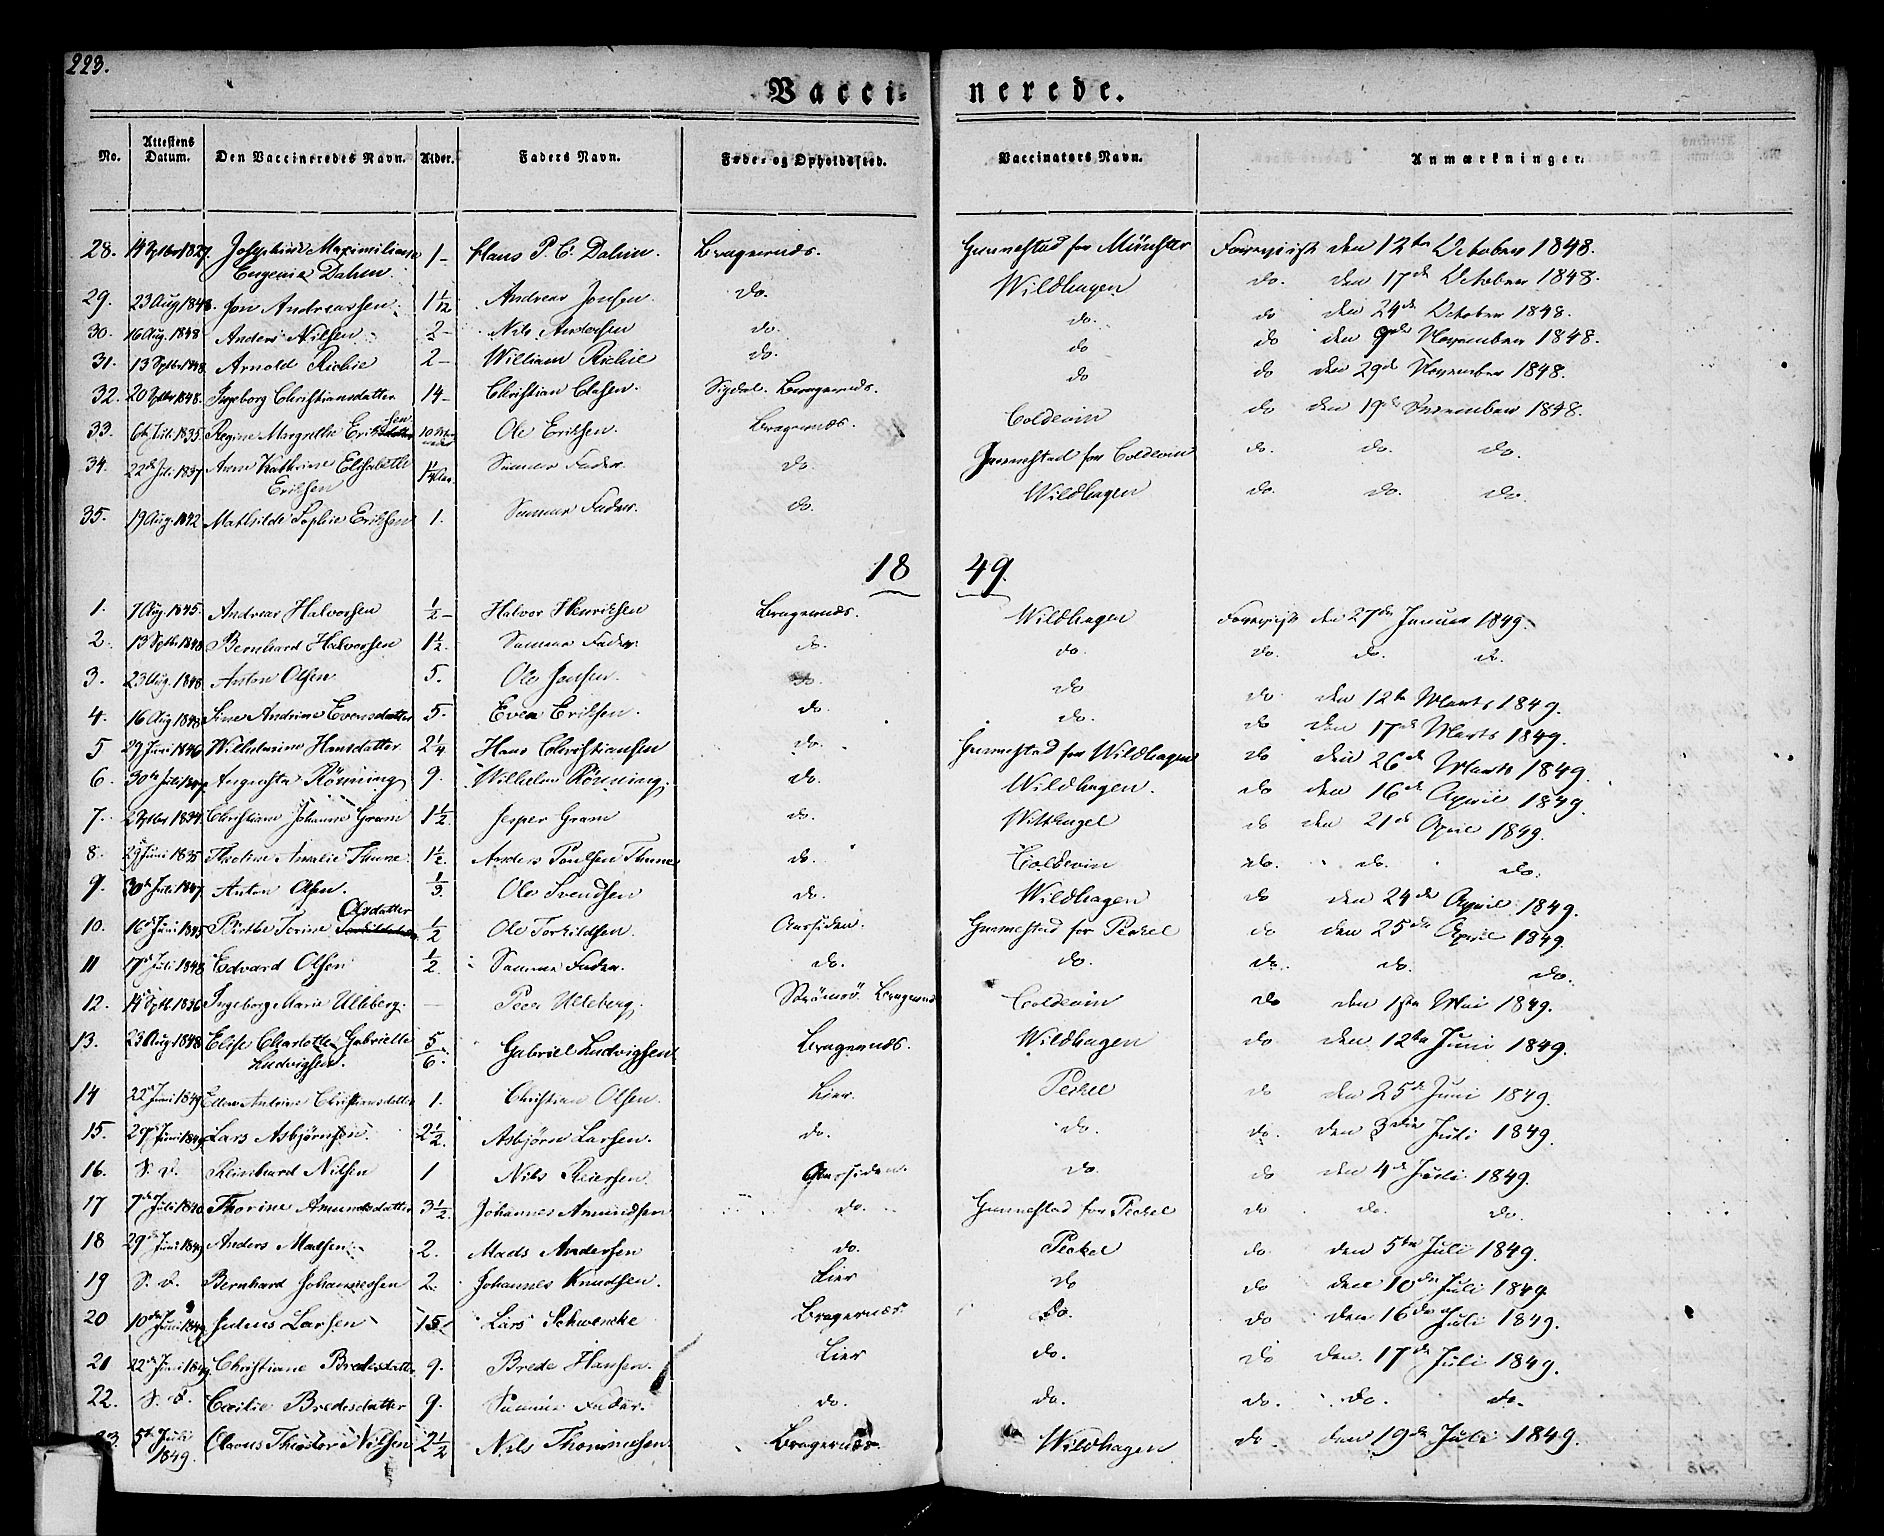 223.
Vacci- nerede.
No. Attestens Datum. Den Vaccineredes Navn. Alder. Faders Navn. Føde- og Opholdssted. Vaccinators Navn. Anmærkninger.
28. 14 Septbr 1827 Josephine Maximiliane Eugenia Dahm. 1 - Hans P. C. Dahm. Bragernæs. Gunnestad for Münster Forevyist den 12te October 1848.
29. 23 Aug 1848. Jon Andreassen. 1 1/12 Andreas Jensen. do. Wildhagen do. den 17de October 1848.
30. 16 Aug. 1848 Anders Nilsen 2 - Nils Andersen do. do. do den 24de October 1848.
31. 13 Septbr 1848. Arnold Richie 2 - William Richie do. do do den 9de November 1848.
32. 20 Septbr 1848. Ingeborg Christiansdatter 14 - Christian Olesen. Sigdal. Bragernæs. do do den 29de November 1848.
33. 6te Juli 1835. Regine Margrethe Eriksen 10 Ole Eriksen. Bragernæs. Coldevin do den 19de December 1848.
34. 22de Juli 1837 Anne Kathrine Elisabeth Eriksen 1 1/4 Samme Fader. do. Gunnestad for Coldevin do. do. do.
35. 19 Aug. 1842 Mathilde Sophie Eriksen 1. Samme Fader. do. Wildhagen do. do. do.
18 49.
1. 7 Aug. 1845. Andreas Halvorsen 1/2 - Halvor Henriksen Bragernæs. Wildhagen Forevyist den 27de Januar 1849.
2. 13 Septbr 1848 Bernhard Halvorsen 1 1/2. Samme Fader. do. do. do. do. do.
3. 23 Aug. 1848. Anton Olsen 5. Ole Jensen. do. do do den 12te Marts 1849.
4. 16 Aug 1843 Sine Andrine Evensdatter 5. Even Eriksen. do. do. do den 17de Marts 1849.
5 29 Juni 1846 Wilhelmine Hansdatter 2 1/4 Hans Christiansen do. Gunnestad for Wildhagen do den 26de Marts 1849.
6. 30te Juli 1847 Augusta Rönning 9. Wilhelm Rönning. do. Wildhagen. do den 16de April 1849.
7. 2 Septbr 1834. Christiane Johanne Gram 1 1/2. Jesper Gram do. Wilhagel do den 21de April 1849.
8. 29 Juni 1835 Tholine Amalie Thune 1 1/2. Anders Paulsen Thune do. Coldevin do. do. do.
9. 30te Juli 1847. Anton Olsen. 1/3. Ole Svendsen do. Wildhagen do den 24de April 1849.
10. 16de Juni 1845 Birthe Torine Olsdatter 1/2 Ole Torkildsen. Aassiden. Gunnestad for Peckel do den 25de April 1849.
11 17de Juli 1848 Edvard Olsen 1/2. Samme Fader. do. do. do. do. do.
12. 14 Septb. 1836 Ingeborg Marie Ulleberg. - Peer Ulleberg. Strömsö. Bragernæs Coldevin do den 1ste Mai 1849.
13. 23 Aug 1848 Elise Charlotte Gabrielle Ludvigsen. 5/6. Gabriel Ludvigsen Bragernæs. Wildhagen do den 12te Juni 1849.
14 22de Juni 1849 Ellen Andrine Christiansdatter 1. Christian Olsen. Lier. Peckel do den 25de Juni 1849.
15. 29de Juni 1849 Lars Asbjörnsen. 2 1/2. Asbjörn Larsen. do. do. do. den 3die Juli 1849.
16. S. D. Reinhard Nilsen 1 Nils Reiersen. Aassiden. do. do den 4de Juli 1849.
17 7de Juli 1840 Thorine Amundsdatter 3 1/2. Johannes Amundsen do. Gunnestad for Peckel do do. do.
18 29de Juni 1849 Anders Madsen. 2. Mads Andersen do. Peckel do den 5te Juli 1849.
19 S. D. Bernhard Johannessen 2. Johannes Knudsen. Lier do do den 10de Juli 1849.
20 10de Juni 1849 Julius Larsen 15 Lars Schwencke Bragernæs do. do den 16de Juli 1849.
21 22de Juni 1849. Christiane Bredesdatter 9. Brede Hansen. Lier do. do den. 17de Juli 1849.
22. S. D. Cecilie Bredesdatter 9. Samme Fader. do. do. do. do. do.
23. 5te Juli 1849. Olavus Theodor Nilsen 2 1/2 Nils Thommesen. Bragernæs Wildhagen do. den 19de Juli 1849.